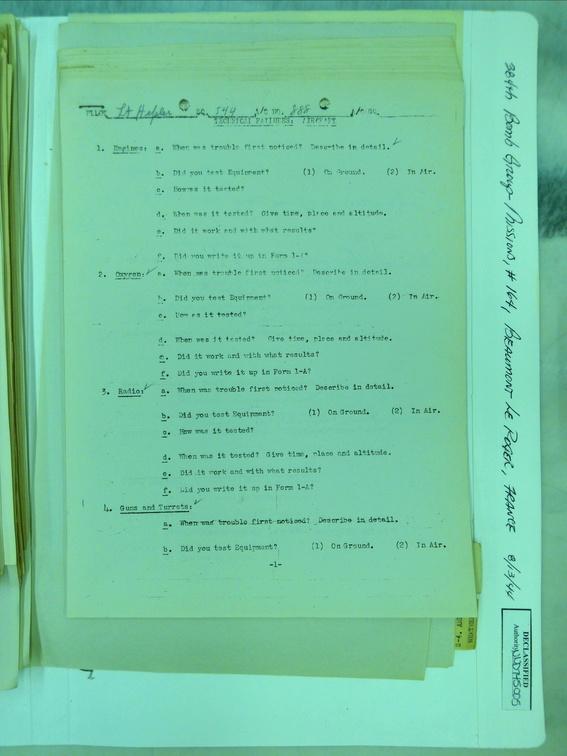 PILOT Lt Hepler SQ. 544 A/C NO. 888 A/C NO.
TECHNICAL FAILURES: AIRCRAFT
1. Engines: a. When was trouble first noticed? Describe in detail.
b. Did you test Equipment? (1) On Ground. (2) In Air.
c. How was it tested?
d. When was it tested? Give time, place and altitude.
e. Did it work and with what results?
f. Did you write it up in Form 1-A?
2. Oxygen: a. When was trouble first noticed? Describe in detail.
b. Did you test Equipment? (1) On Ground. (2) In Air.
c. How as it tested?
d. When was it tested? Give time, place and altitude.
e. Did it work and with what results?
f. Did you write it up in Form 1-A?
3. Radio: a. When was trouble first noticed? Describe in detail.
b. Did you test Equipment? (1) On Ground. (2) In Air.
c. How was it tested?
d. When was it tested? Give time, place and altitude.
e. Did it work and with what results?
f. Did you write it up in Form 1-A?
4. Guns and Turrets:
a. When was trouble first noticed? Describe in detail.
b. Did you test Equipment? (1) On Ground. (2) In Air.
-1-
384th Bomb Group- Missions, # 164, Beaumont Le Roger, FRANCE 8/13/44
DECLASSIFIED
Authority NND745005